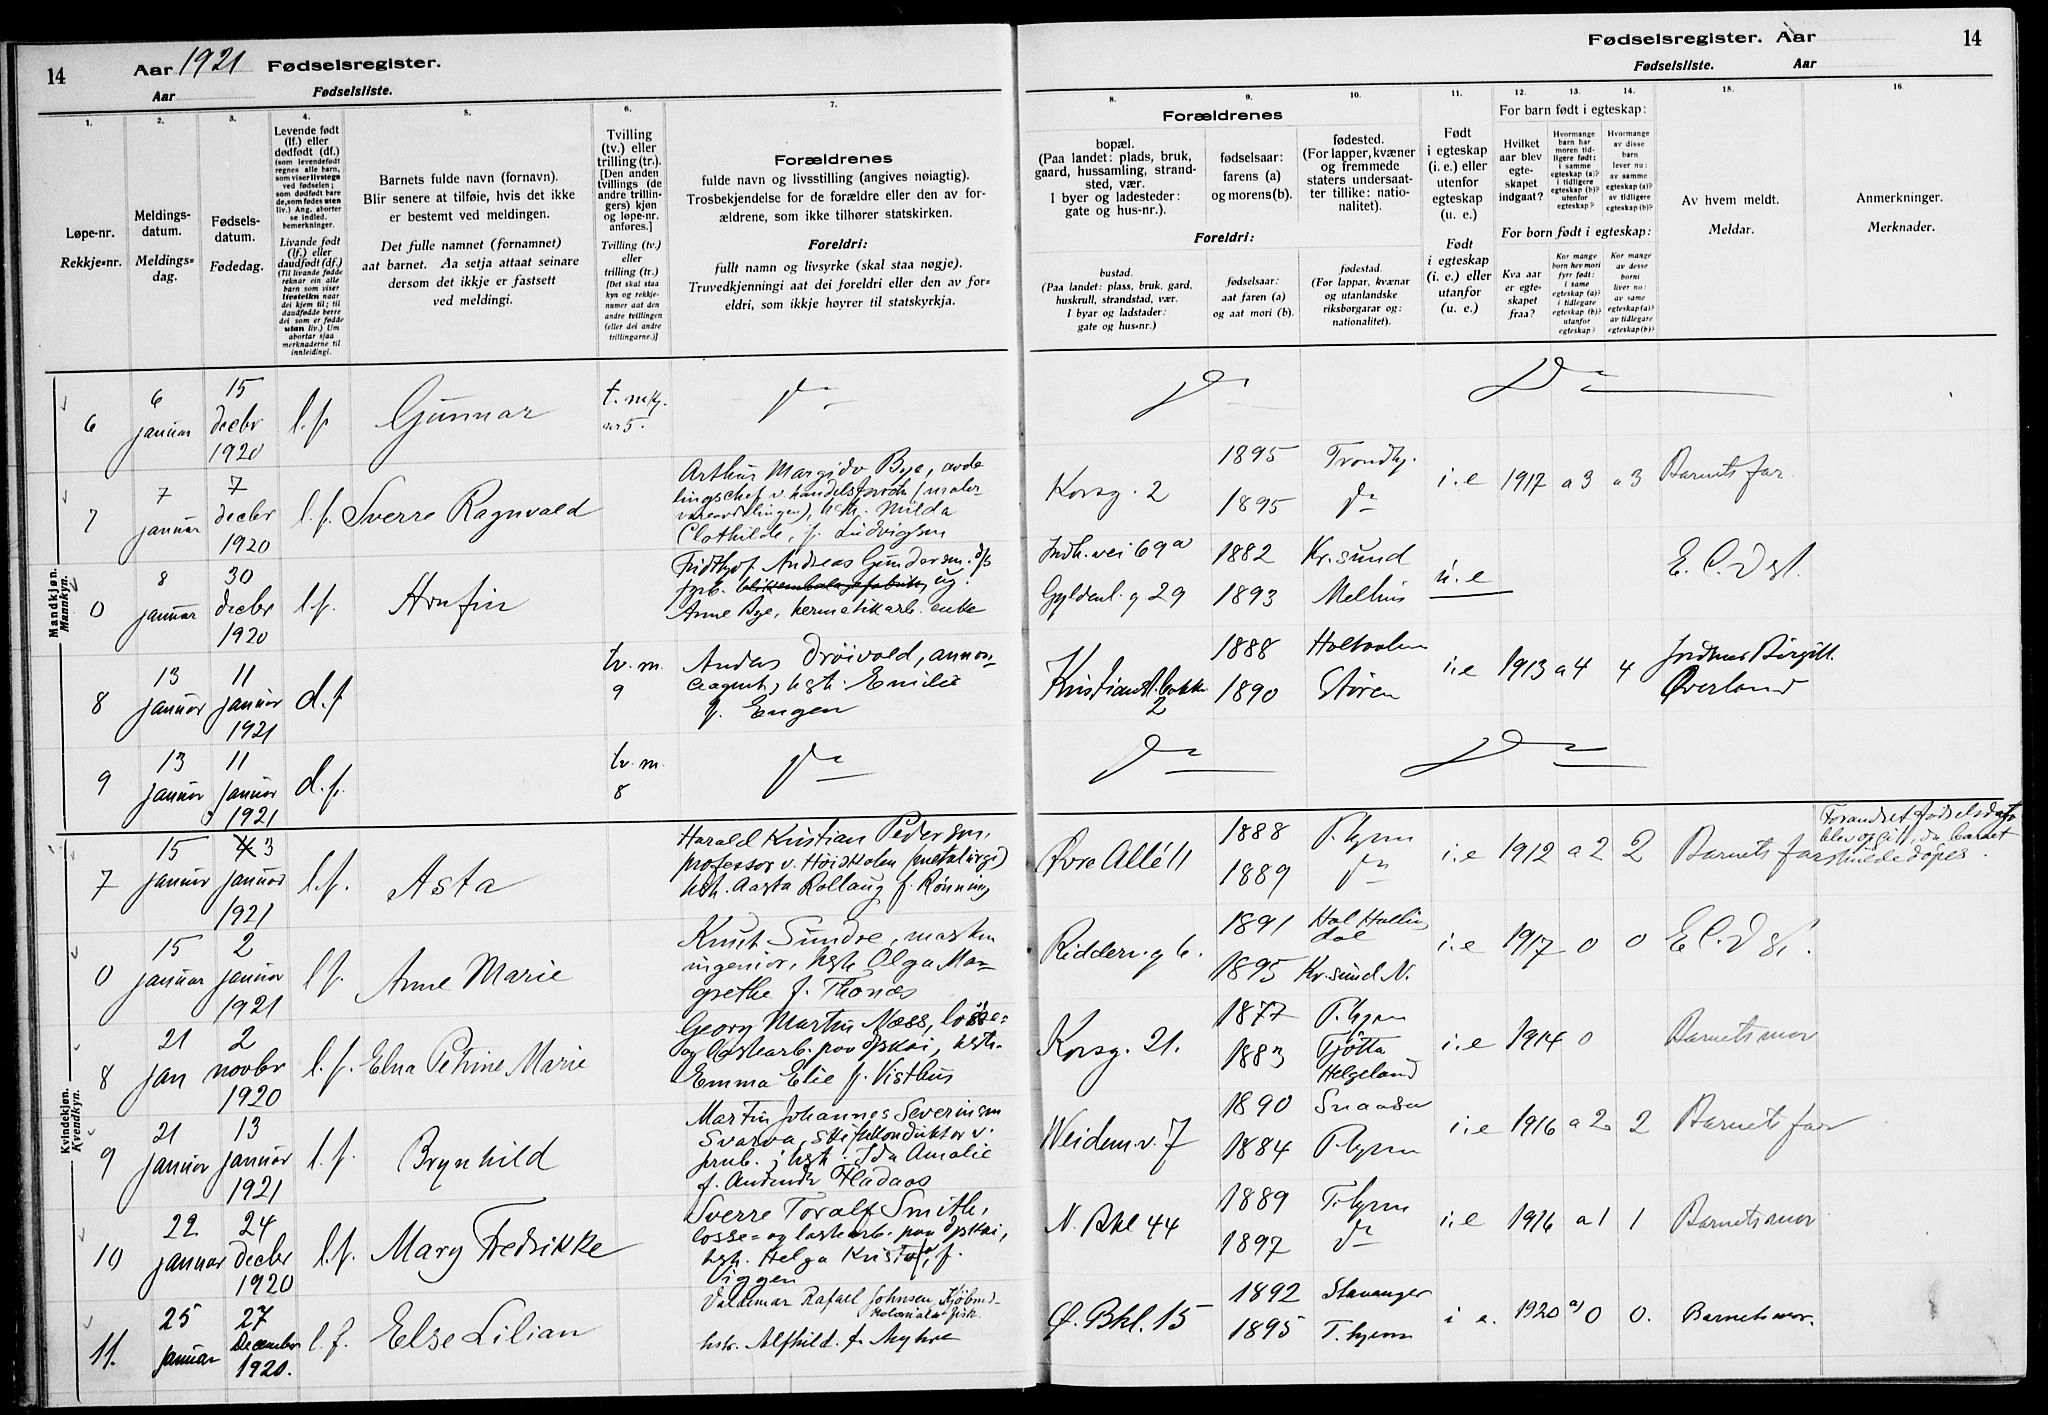 14
Aar 1921 Fødselsregister.
Aar Fødselsliste.
Fødselsregister. Aar
14
Fødselsliste. Aar
1.
Løpe-nr.
Rekkje-nr.
2.
Meldings-
datum.
Meldings-
dag.
3.
Fødsels-
datum.
Fødedag.
4.
Levende født
(lf.) eller
dødfødt (df.)
(som levendefødt
regnes alle barn,
som viser livstegn
ved fødselen;
som dødfødt bare
de, som fødes uten
liv.) Ang. aborter
se indled.
bemerkninger.
Livande født
(lf.) eller
daudfødt (df.)
(Til livande fødde
reknar ein alle
barn som viser
livsteikn naar
dei kjem til; til
daudfødde berre
dei som er fødde
utan liv.) Um
abortar sjaa
merknaderne til
innleidingi.
5.
Barnets fulde navn (fornavn).
Blir senere at tilføie, hvis det ikke
er bestemt ved meldingen.
Det fulle namnet (fornamnet)
aat barnet. Aa setja attaat seinare
dersom det ikkje er fastsett
ved meldingi.
6.
Tvilling
(tv.) eller
trilling (tr.).
[Den anden
tvillings (de
andre trillin-
gers) kjøn
og løpe-nr.
anføres.]
Tvilling (tv.)
eller
trilling (tr.)
[Det skal staa
kyn og rekkje-
nummer aat den
andre tvillingen
(eller dei andre
trillingarne.)]
7.
Forældrenes
fulde navn og livsstilling (angives nøiagtig).
Trosbekjendelse for de forældre eller den av for-
ældrene, som ikke tilhører statskirken.
Foreldri:
fullt namn og livsyrke (skal staa nøgje).
Truvedkjenningi aat dei foreldri eller den av for-
eldri, som ikkje høyrer til statskyrkja.
8.
9.
10.
Forældrenes
bopæl.
(Paa landet: plads, bruk,
gaard, hussamling, strand-
sted, vær.
I byer og ladesteder:
gate og hus-nr.).
fødselsaar:
farens (a)
og morens (b).
fødested.
(For lapper, kvæner
og fremmede
staters undersaat-
ter tillike: natio-
nalitet).
Foreldri:
bustad.
(Paa landet: plass, bruk, gard,
huskrull, strandstad, vær.
I byar og ladstader:
gate og hus-nr.)
fødselsaar:
aat faren (a)
og aat mori (b).
fødestad.
(For lappar, kvænar
og utanlandske
riksborgarar og:
nationalitet).
11.
Født
i egteskap
(i. e.) eller
utenfor
egteskap
(u. e.)
Født
i egteskap
(i. e.) eller
utanfor
egteskap
(u. e.)
12. 13. 14.
For barn født i egteskap:
Hvilket
aar blev
egte-
skapet
indgaat?
Hvormange
barn har
moren tid-
ligere født:
i samme
egteskap (a)?
i tidligere
egteskap (b)?
utenfor
egteskap?
Hvormange
av disse
barn
lever nu:
av samme
egteskap (a)?
av tidligere
egteskap (b)?
For born født i egteskap:
Kva aar
er egte-
skapet
fraa?
Kor mange
born hev mori
fyrr født:
i same
egteskap (a)?
i tidlegare
egteskap (b)?
utanfor
egteskap?
Kor mange
av desse
borni
liver no:
av same
egteskap (a)?
av tidlegare
egteskap (b)?
15.
Av hvem meldt.
Meldar.
16.
Anmerkninger.
Merknader.
Mandkjøn.
Mannkyn.
6 6 januar 15 decbr 1920 l.f. Gunnar t. m.kj. nr 5. do do do
7 7 januar 7 decbr 1920 l.f. Sverre Ragnvald
Arthur Margido Bye, avde
lingschef v. handelsforetn (maler
vareavdelingen), hst. Milda
Clothilde, f. Ludvigsen
Korsg. 2 1895 Trondhj. 1895 do i.e 1917 a 3 a 3 Barnets far.
0 8 januar 30 decbr 1920 l.f. Arnfin
Fridthjof Andreas Gundersen.
fyrb. ug.
Anne Bye, hermetikarb. enke
Indh.vei 69a 1882 Kr.sund
Gyldenl. g 29 1893 Melhus u.e E.C.Dgl.
8 13 januar 11 januar 1921 d.f tv. m. 9
Anders Drøivold, annon-
ceagent, hst. Emilie
f. Engen
Kristianst.bakke 2 1888 Holtaalen 1890 Støren i.e 1913 a 4 4 Jordmor Birgitt. Øverland
9 13 januar 11 januar 1921 d.f. tv. m. 8 do do do
Kvindekjøn.
Kvendkyn.
7 15 januar 3 januar 1921 l.f. Asta
Harald Kristian Pedersen,
professor v. Høiskolen (metalurgi)
hst. Aasta Rollaug f. Rønning
Øvre Allé 11 1888 T.hjem 1889 do i.e 1912 a 2 2 Barnets far
Forandret fødselsdato
blev opgit, da barnet
skulde døpes.
0 15 januar 2 januar 1921 l.f. Anne Marie
Knut Sundre, maskin
ingeniør, hst. Olga Mar-
grethe f. Thonæs
Ridderv.g 6. 1891 Hol Hallin dal 1895 Kr.sund N. i.e 1917 0 0 E.C.Dgl.
8 21 jan 2 novbr 1920 l.f. Elna Petrine Marie
Georg Martin Næss, losse=
og lastearb. paa Dpskai, hst.
Emma Elie f. Visthus
Korsg. 21. 1877 T.hjem 1883 Tjøtta Helgeland i.e 1914 0 Barnets mor
9 21 januar 13 januar 1921 l.f. Brynhild
Martin Johannes Severinsen
Svarva, skiftekonduktør v.
jernb.; hst. Ida Amalie
f. Hladaas
Weidem.v. 7 1890 Snaasa 1884 T.hjem i.e 1916 a 2 2 Barnets far
10 22 januar 24 decbr 1920 l.f. Mary Fredrikke
Sverre Toralf Smith,
losse= og lastearb. paa Dpskai,
hst. Helga Kristofa, f.
Viggen
N. Bkl 44 1889 T.hjem 1897 do i.e 1916 a 1 1 Barnets mor
11. 25 januar 27 December 1920. l.f. Else Lilian
Valdemar Rafael Johnsen, Kjøbmd.
Kolonial & fisk.
hstr. Alfhild f. Myhre
Ø. Bkl. 15 1892 Stavanger 1895 T.hjem i e. 1920 a) 0 0. Barnets mor.